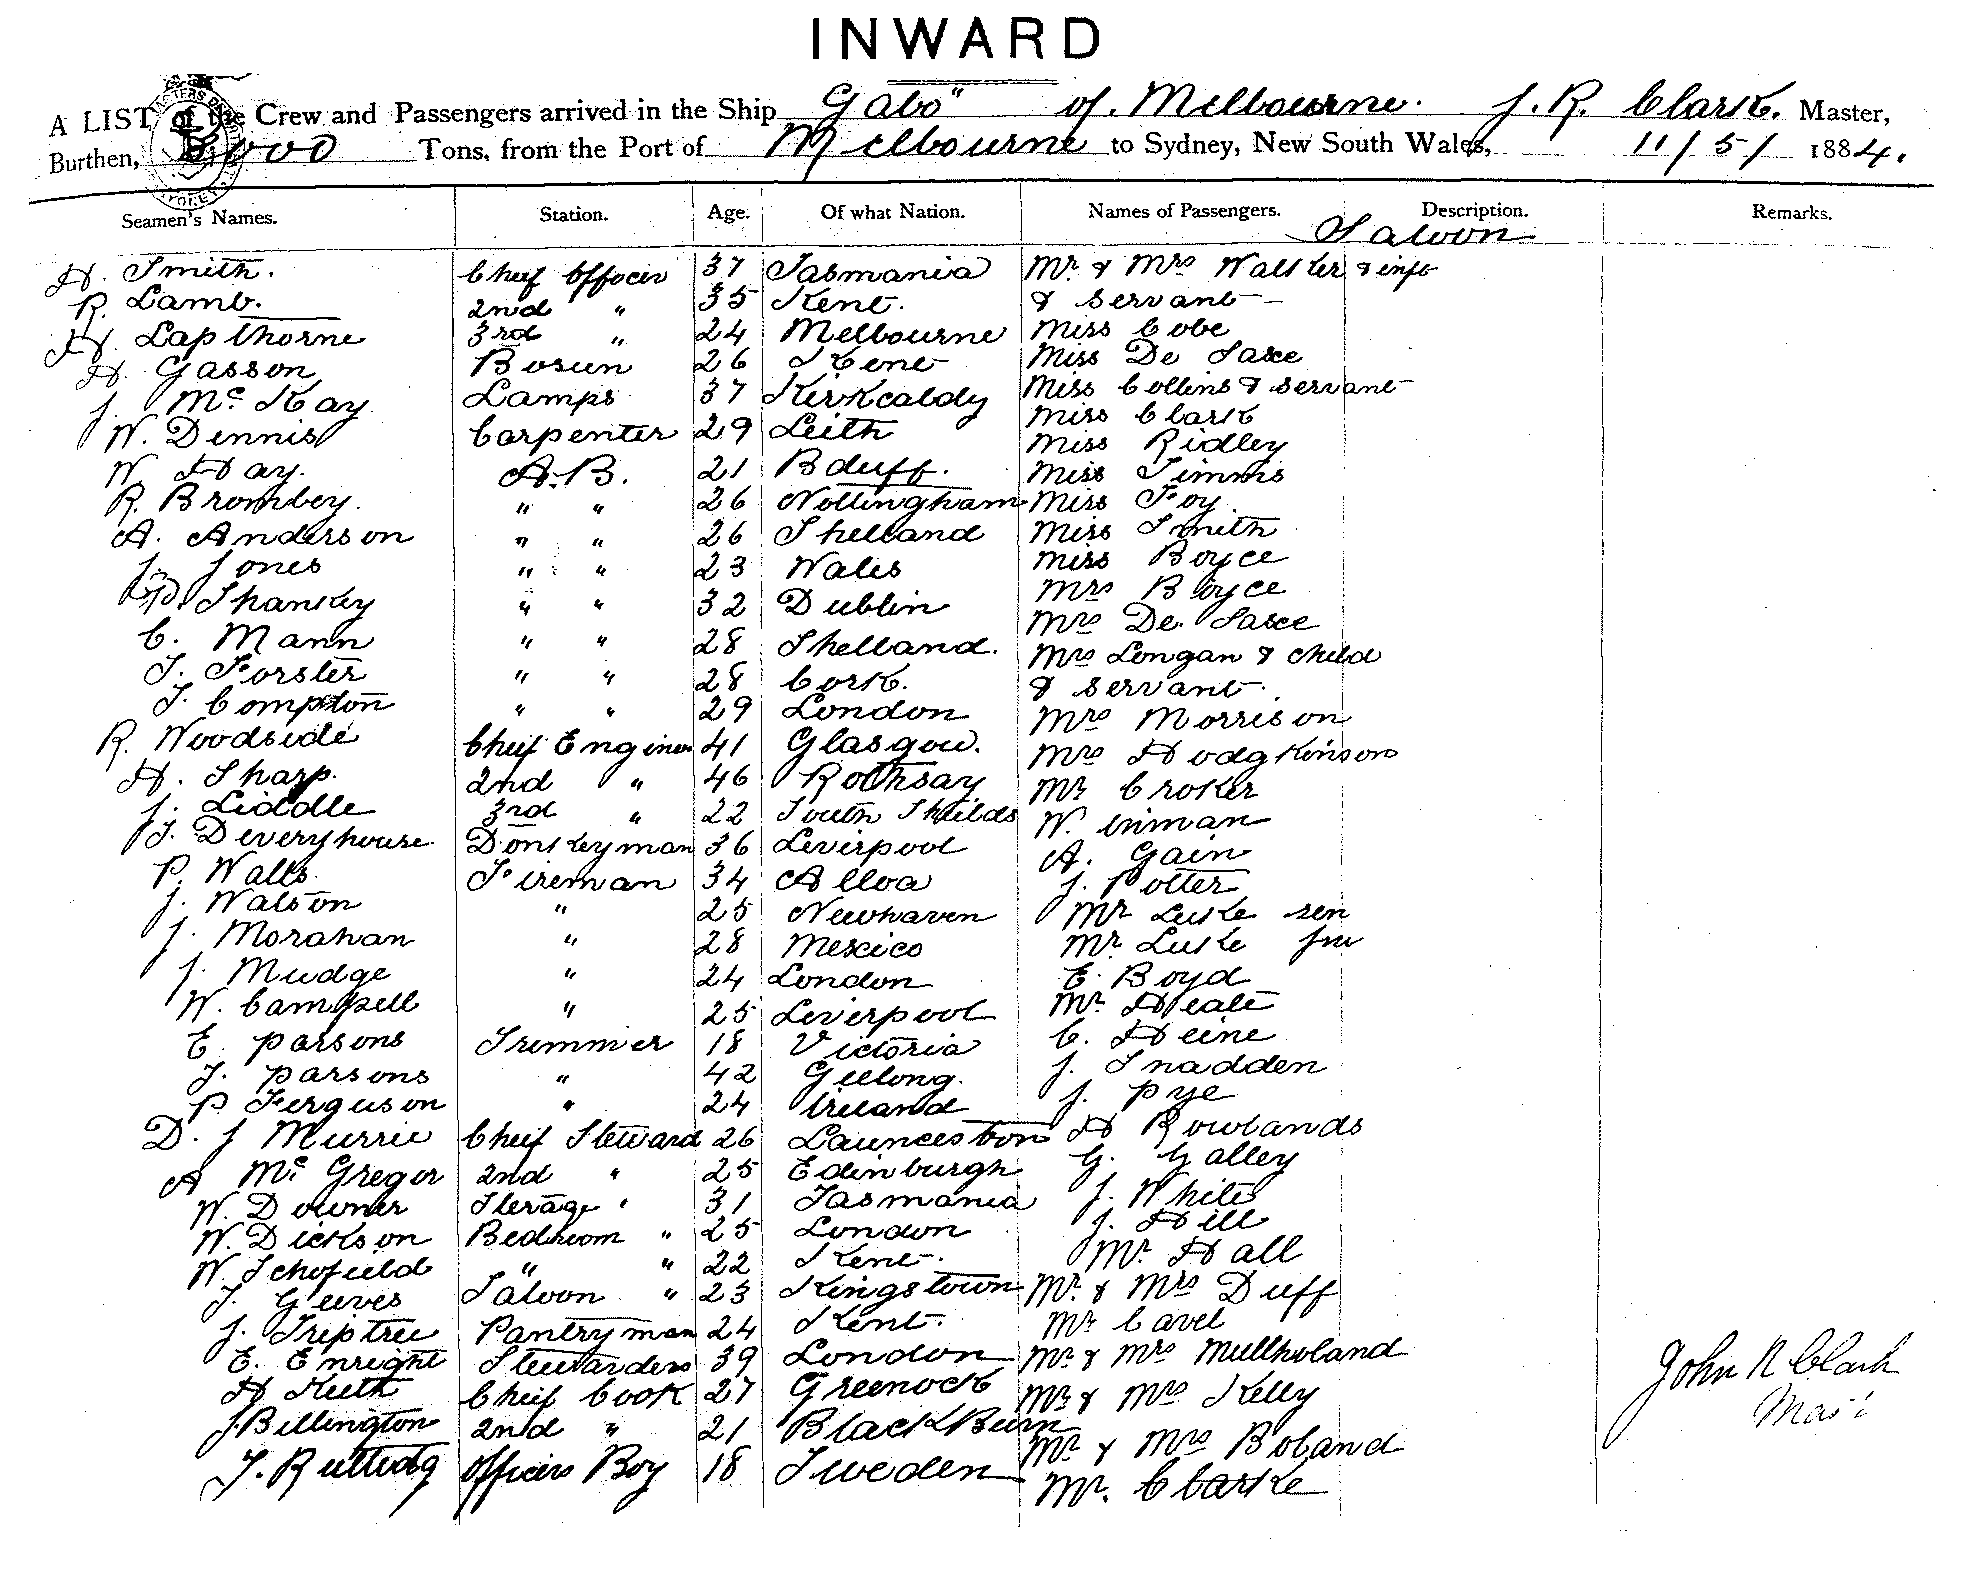 INWARD
A LIST of the Crew and Passengers arrived in the Ship Gabo" of Melbourne. J. R. Clark. Master,
Burthen, 2000 Tons, from the Port of Melbourne to Sydney, New South Wales, 11/5/ 1884.
Seamen's Names. Station. Age. Of what Nation. Names of Passengers. Description. Remarks.
Saloon
H. Smith. Cheif Officer 37 Tasmania Mr. & Mrs Walster & inft
R. Lamb. 2nd " 35 Kent. & Servant
H. Lapthorne 3rd " 24 Melbourne Miss Cobe
H. Gasson Bosun 26 Kent Miss De Saxe
J. Mc Kay Lamps 37 Kirkcaldy Miss Collins & Servant
W. Dennis Carpenter 29 Leith Miss Clark
W. Hay. A.B. 21 Bduff. Miss Ridley
R. Brombey. " " 26 Nottingham Miss Timms
A. Anderson " " 26 Shetland Miss Foy
J. Jones " " 23 Wales Miss Smith
Shansky " " 32 Dublin Miss Boyce
C. Mann " " 28 Shetland. Mrs Boyce
T. Forster " " 28 Cork. Mrs De. Saxe
T. Compton " " 29 London Mrs Longan & Child
R. Woodside Cheif Enginer 41 Glasgow. & Servant.
H. Sharp. 2nd " 46 Rothsay Mrs Morrison
J. Liddle 3rd " 22 South Sheilds Mrs Hodgkinson
T. Deveryhouse Donkeyman 36 Liverpool Mr Croker
P. Walls. Fireman 34 Alloa W. inman
J. Watson " 25 Newhaven A. Gain
J. Morahan " 28 Mexico J. Potter
J. Mudge " 24 London Mr Luske sen
W. Campell " 25 Liverpool Mr. Luske jnr
E. parsons Trimmer 18 Victoria E. Boyd
J. parsons " 42 Geelong. Mr. Heale
P. Ferguson " 24 Ireland C. Heine
D. J Murrie Cheif Steward 26 Launceston J. Snadden
A Mc Gregor 2nd " 25 Edinburgh J. pye
W. Downer Sterage " 31 Tasmania H Rowlands
W. Dickson Bedroom " 25 London G. Galley
W. Schofield " " 22 Kent. J. White
J. Geeves Saloon " 23 Kingstown J. Hill
J. Triptree Pantryman 24 Kent. Mr. Hall
E. Enright Stewardess 39 London Mr. & Mrs Duff
H Keith Cheif Cook 27 Greenock Mr Cavel
J. Billington 2nd " 21 BlackBurn Mr. & Mrs Mullholand
J. Ruttidg Officers Boy 18 Sweden Mr & Mrs Kelly
Mr & Mrs Boland
Mr. Clarke
John R Clark